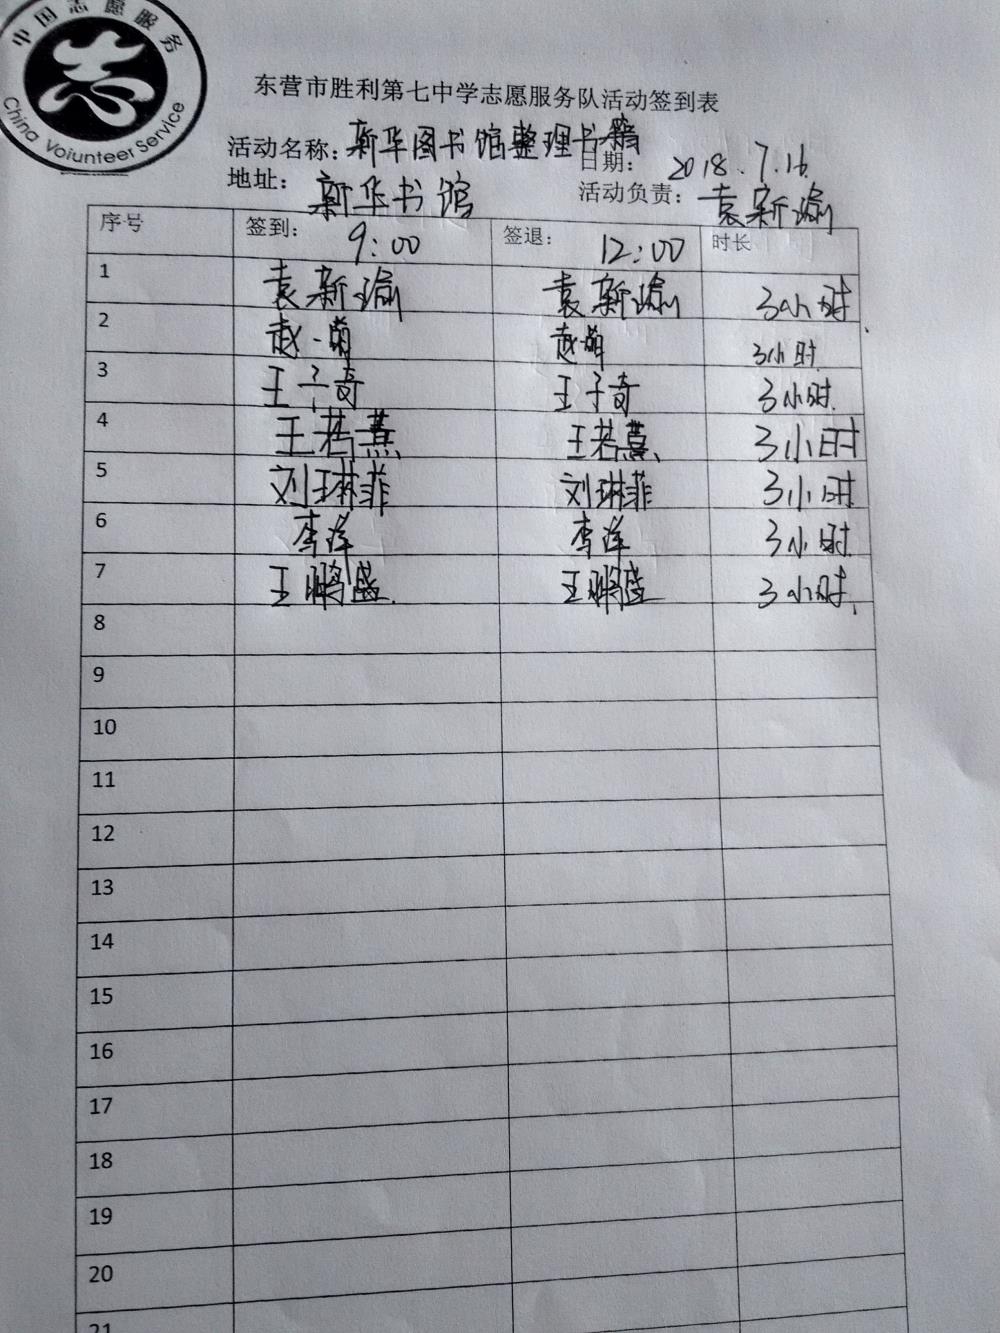 中国志愿服务
China Volunteer Service
东营市胜利第七中学志愿服务队活动签到表
活动名称：新华图书馆整理书籍 日期： 2018.7.16.
地址： 新华书馆 活动负责：袁新瑜
序号 签到： 9:00 签退： 12:00 时长
1 袁新瑜 袁新瑜 3小时
2 赵一萌 赵萌 3小时
3 王子奇 王子奇 3小时
4 王若熹 王若熹 3小时
5 刘琳菲 刘琳菲 3小时
6 李洋 李洋 3小时
7 王鹏盛 王鹏盛 3小时
8
9
10
11
12
13
14
15
16
17
18
19
20
21